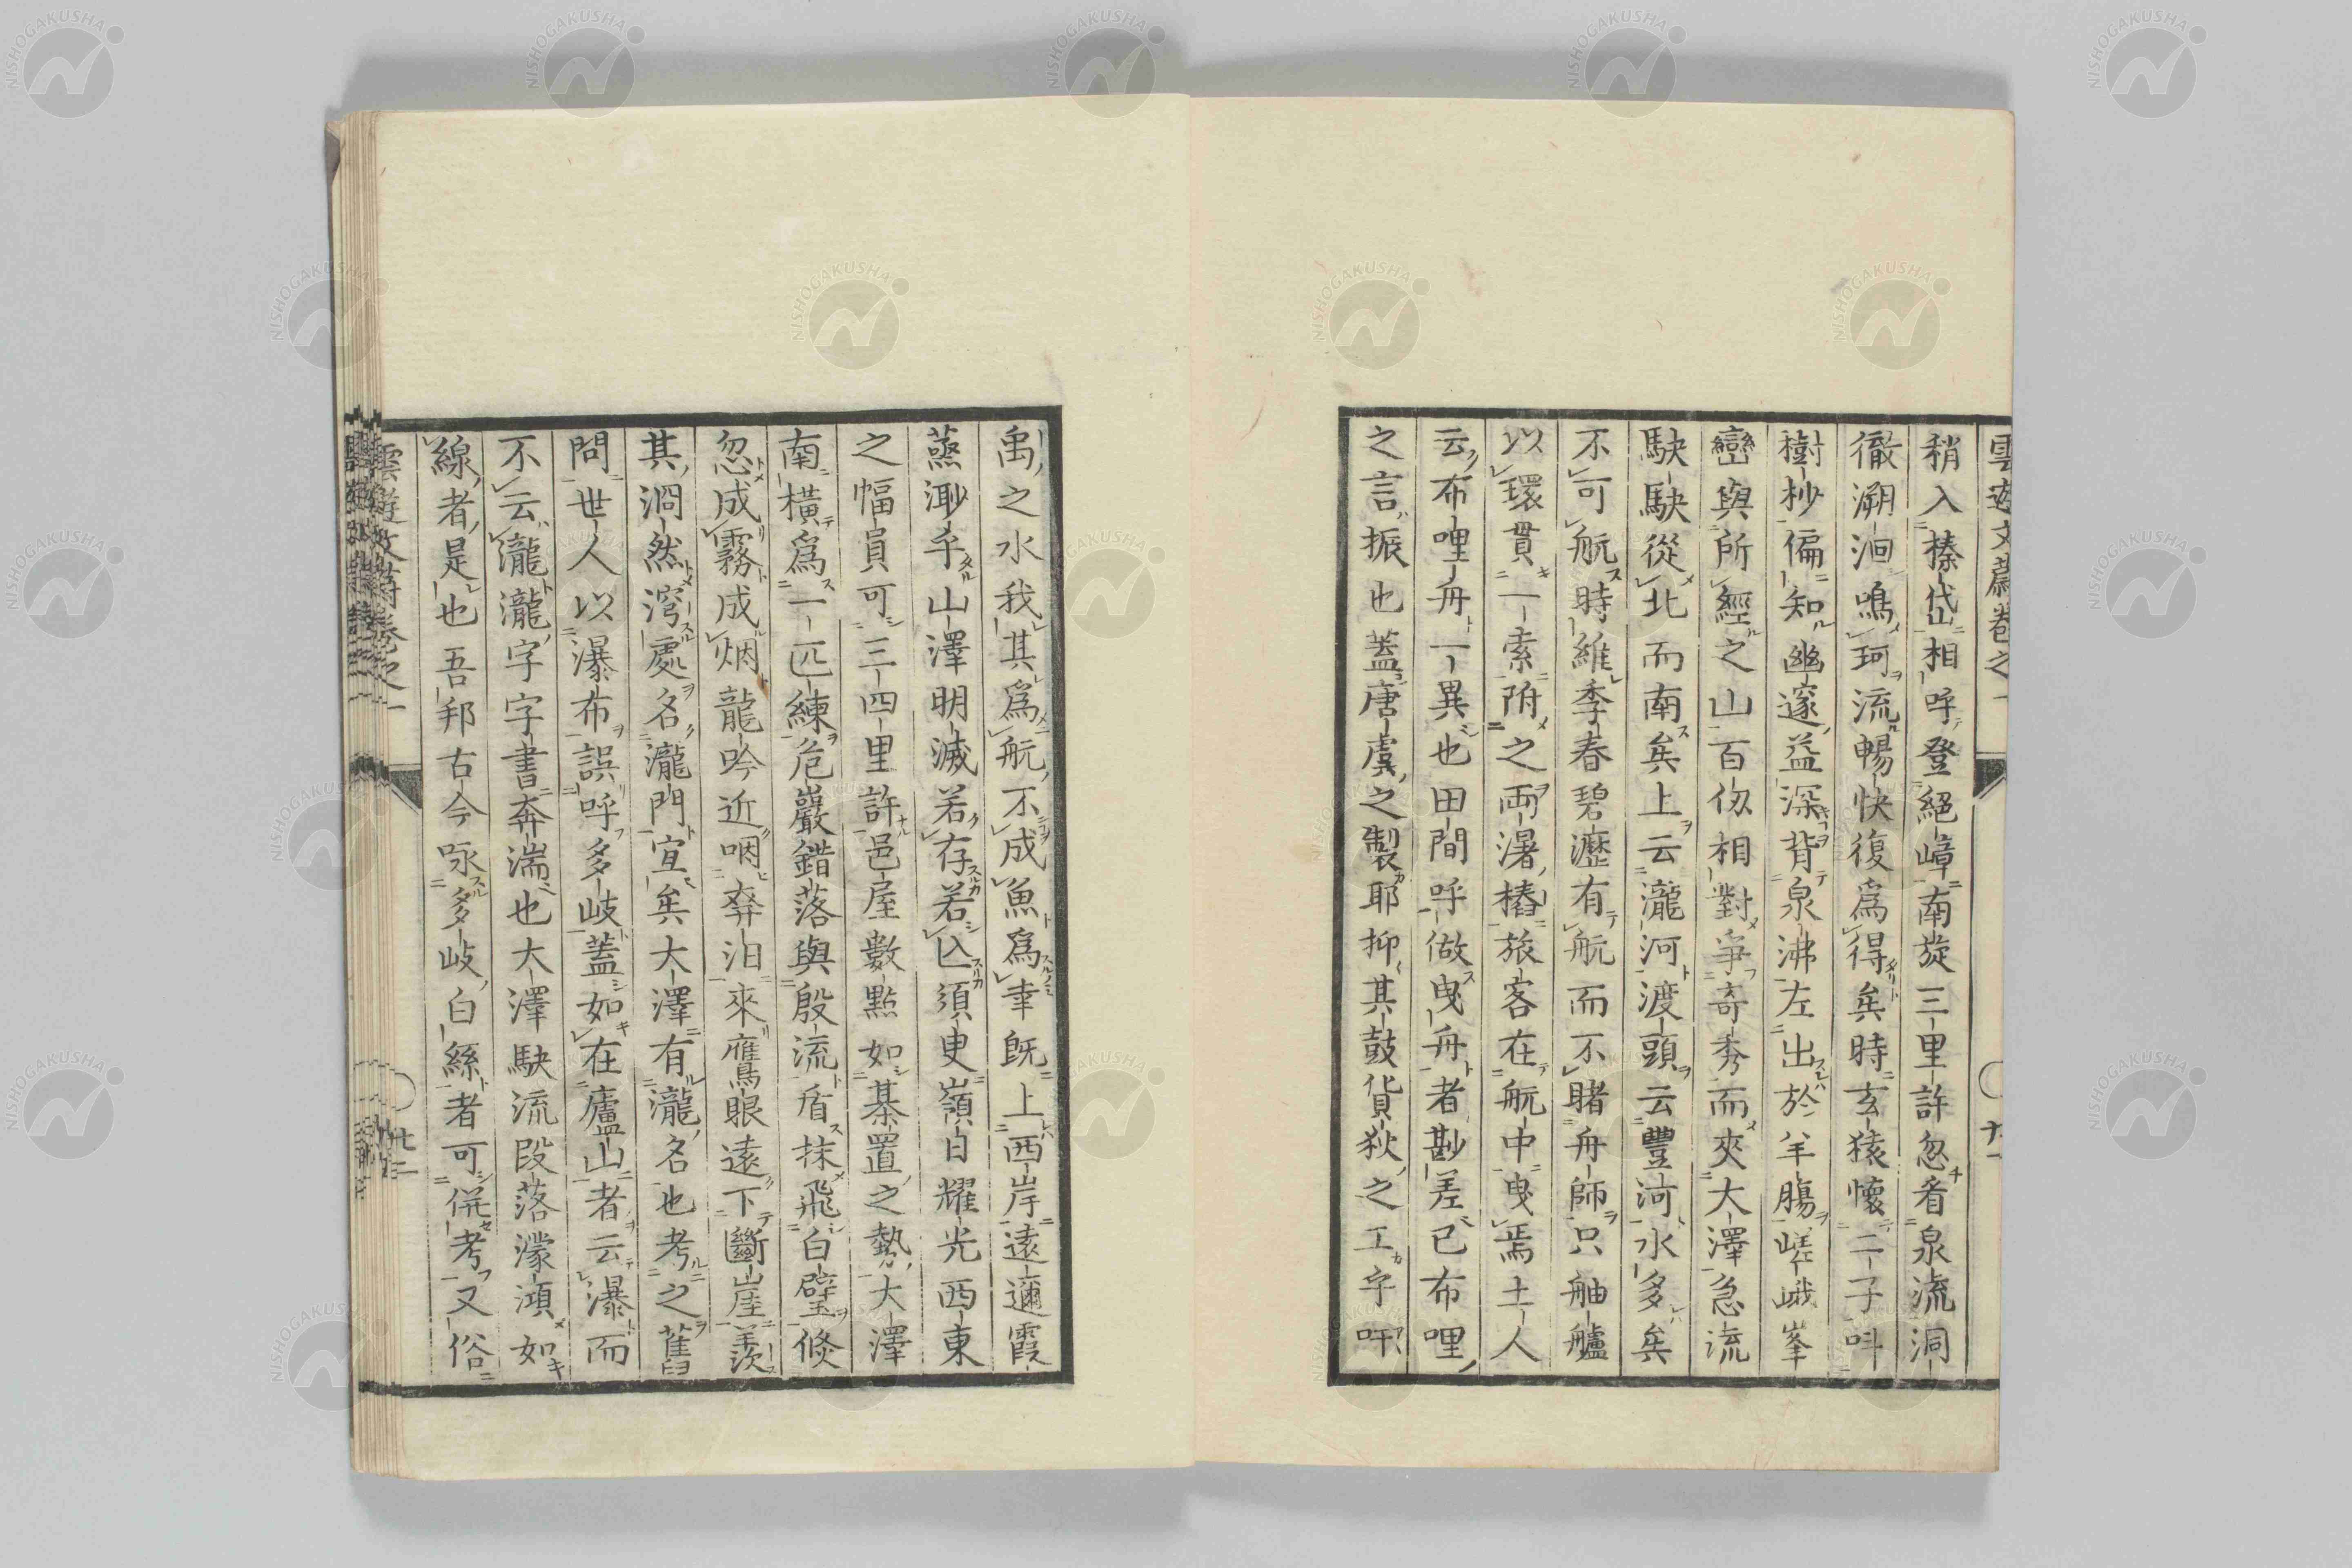 雲遊文蔚卷之一
稍入榛岱相呼登絕嶂南旋三里許忽看泉流洞
徹溯洄鳴珂流暢快復爲得矣時玄猿懷二子叫
樹杪偏知幽邃益深背泉沸左出於羊膓嵯峨峯
巒與所經之山百仭相對爭奇秀而夾大澤急流
駃駃從北而南矣上云瀧河渡頭云豐河水多矣
不可航時維季春碧瀝有航而不睹舟師只舳艫
以環貫一索附之兩濖樁旅客在航中曳焉土人
云布哩舟一異也田間呼做曳舟者尠差已布哩
之言振也蓋唐虞之製耶抑其鼓貨狄之工字吥
禹之水我其爲航不成魚爲幸既上西岸遠邇霞
蒸渺乎山澤明滅若存若亾須臾嶺日耀光西東
之幅員可三四里許邑屋數點如棊置之勢大澤
南橫爲一匹練危巖錯落與殷流盾抹飛白壁倏
忽成霧成烟龍吟近咽奔汨來鷹眼遠下斷崖羨
其泂然瀉處名瀧門宜矣大澤有瀧名也考之舊
問世人以瀑布誤呼多岐蓋如在廬山者云瀑而
不云瀧瀧字字書奔湍也大澤駃流段落濛澒如
線者是也吾邦古今咏多岐白絲者可併考又俗
雲遊文蔚卷之一
NISHOGAKUSHA